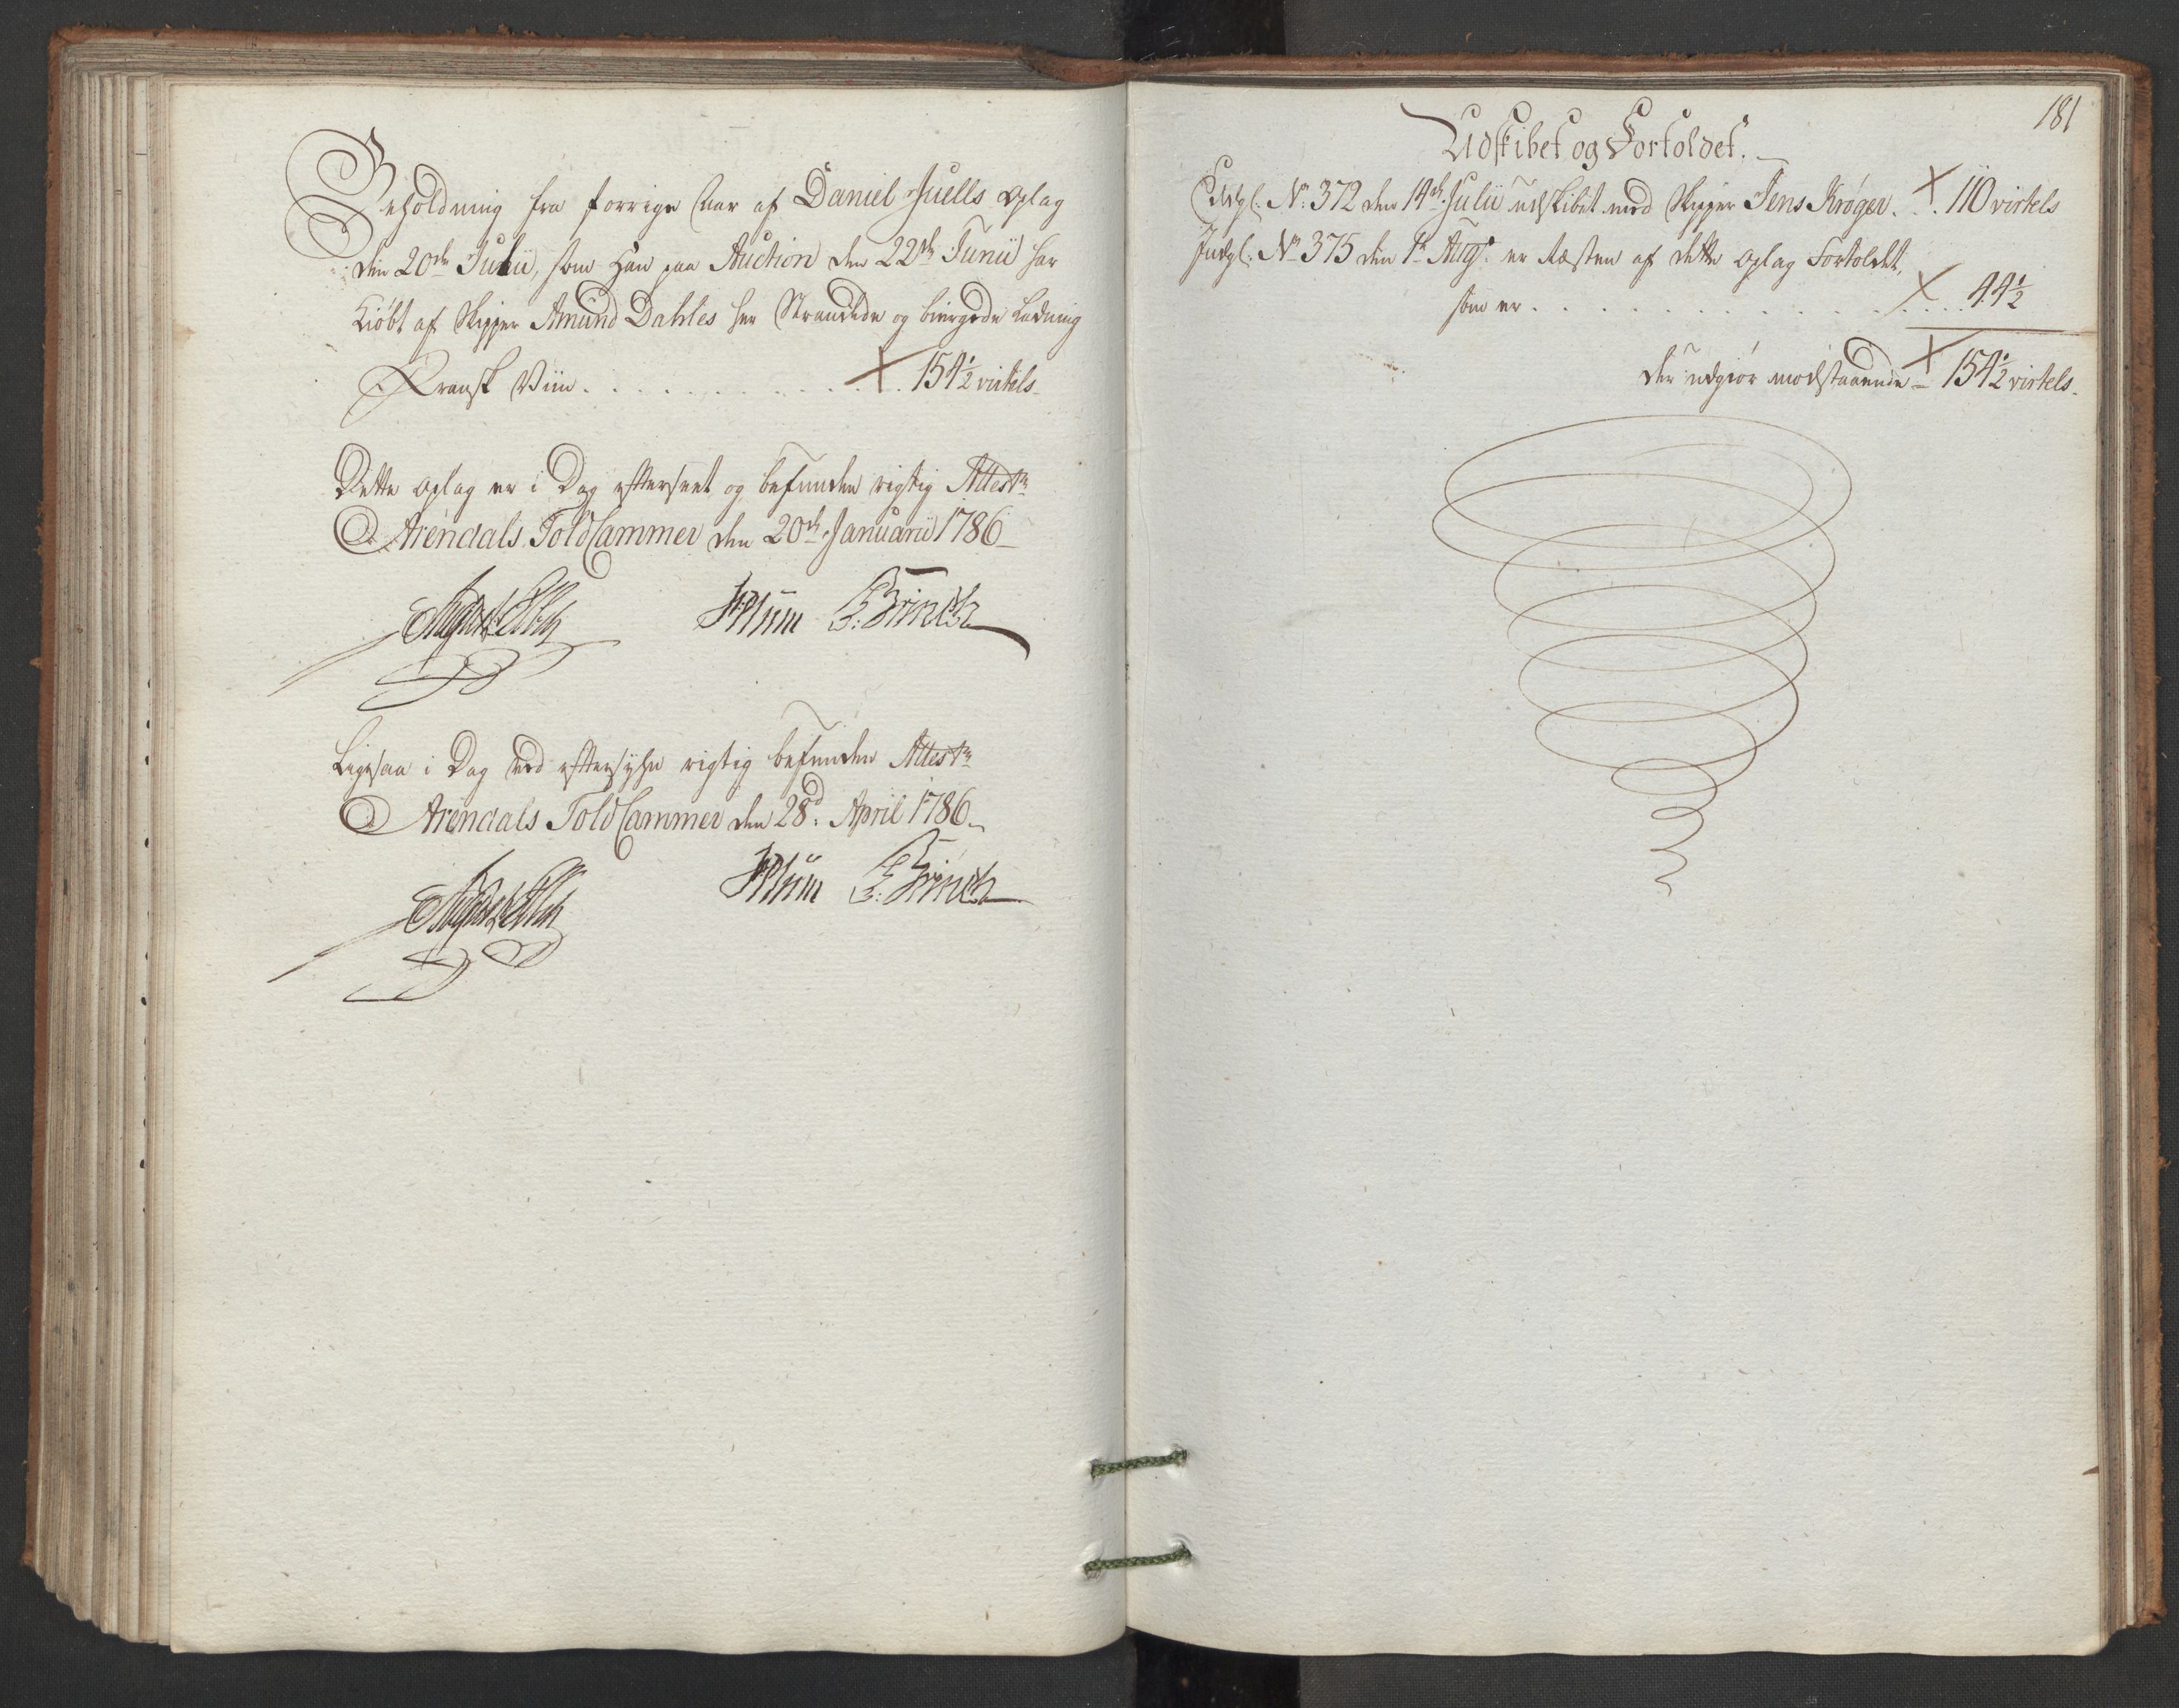 Beholdning fra forrige Aar af Daniel Juells Oplag
den 20de Julii, som han paa Auction den 22de Junii har
Kiöbt af Skipper Amund Dahles her Strandede og biergede Ladning
Fransk Viin . . . . . . . . . . 154½ virtels
Dette Oplag er i Dag efterseet og befunden rigtig Attestr
Arendals ToldCammer den 20de Januarii 1786
Plum Brinch
Ligesaa i Dag ved eftersyhn rigtig befunden Attestr
Arendals ToldCammer den 28d: April 1786
Plum Brinch
181
Udskibet og Fortoldet.
Udgl: No: 372 den 14de Julii udskibet med Skipper Jens Krøger . . 110 virtels
Indgl: No 375 den 1te Augs: er Resten af dette Oplag Fortoldet,
som er . . . . . . . . . . 44½
der udgiør modstaaende 154½ virtels